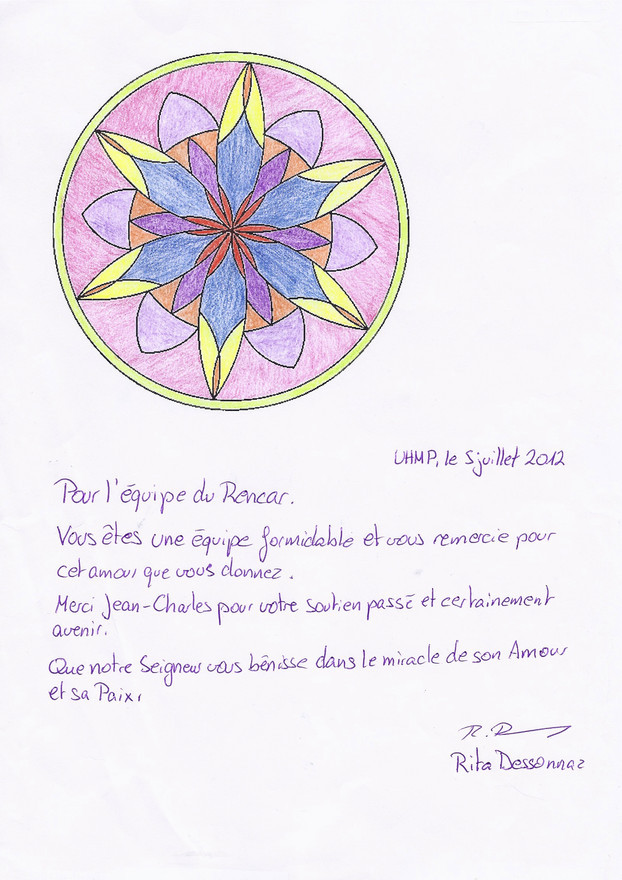 UHMP, le 5 juillet 2012
Pour l'équipe du Rencar.
Vous êtes une équipe formidable et vous remercie pour
cet amour que vous donnez.
Merci Jean-Charles pour votre soutien passé et certainement
avenir.
Que notre Seigneur vous bénisse dans le miracle de son Amour
et sa Paix,
R. D
Rita Dessonnaz